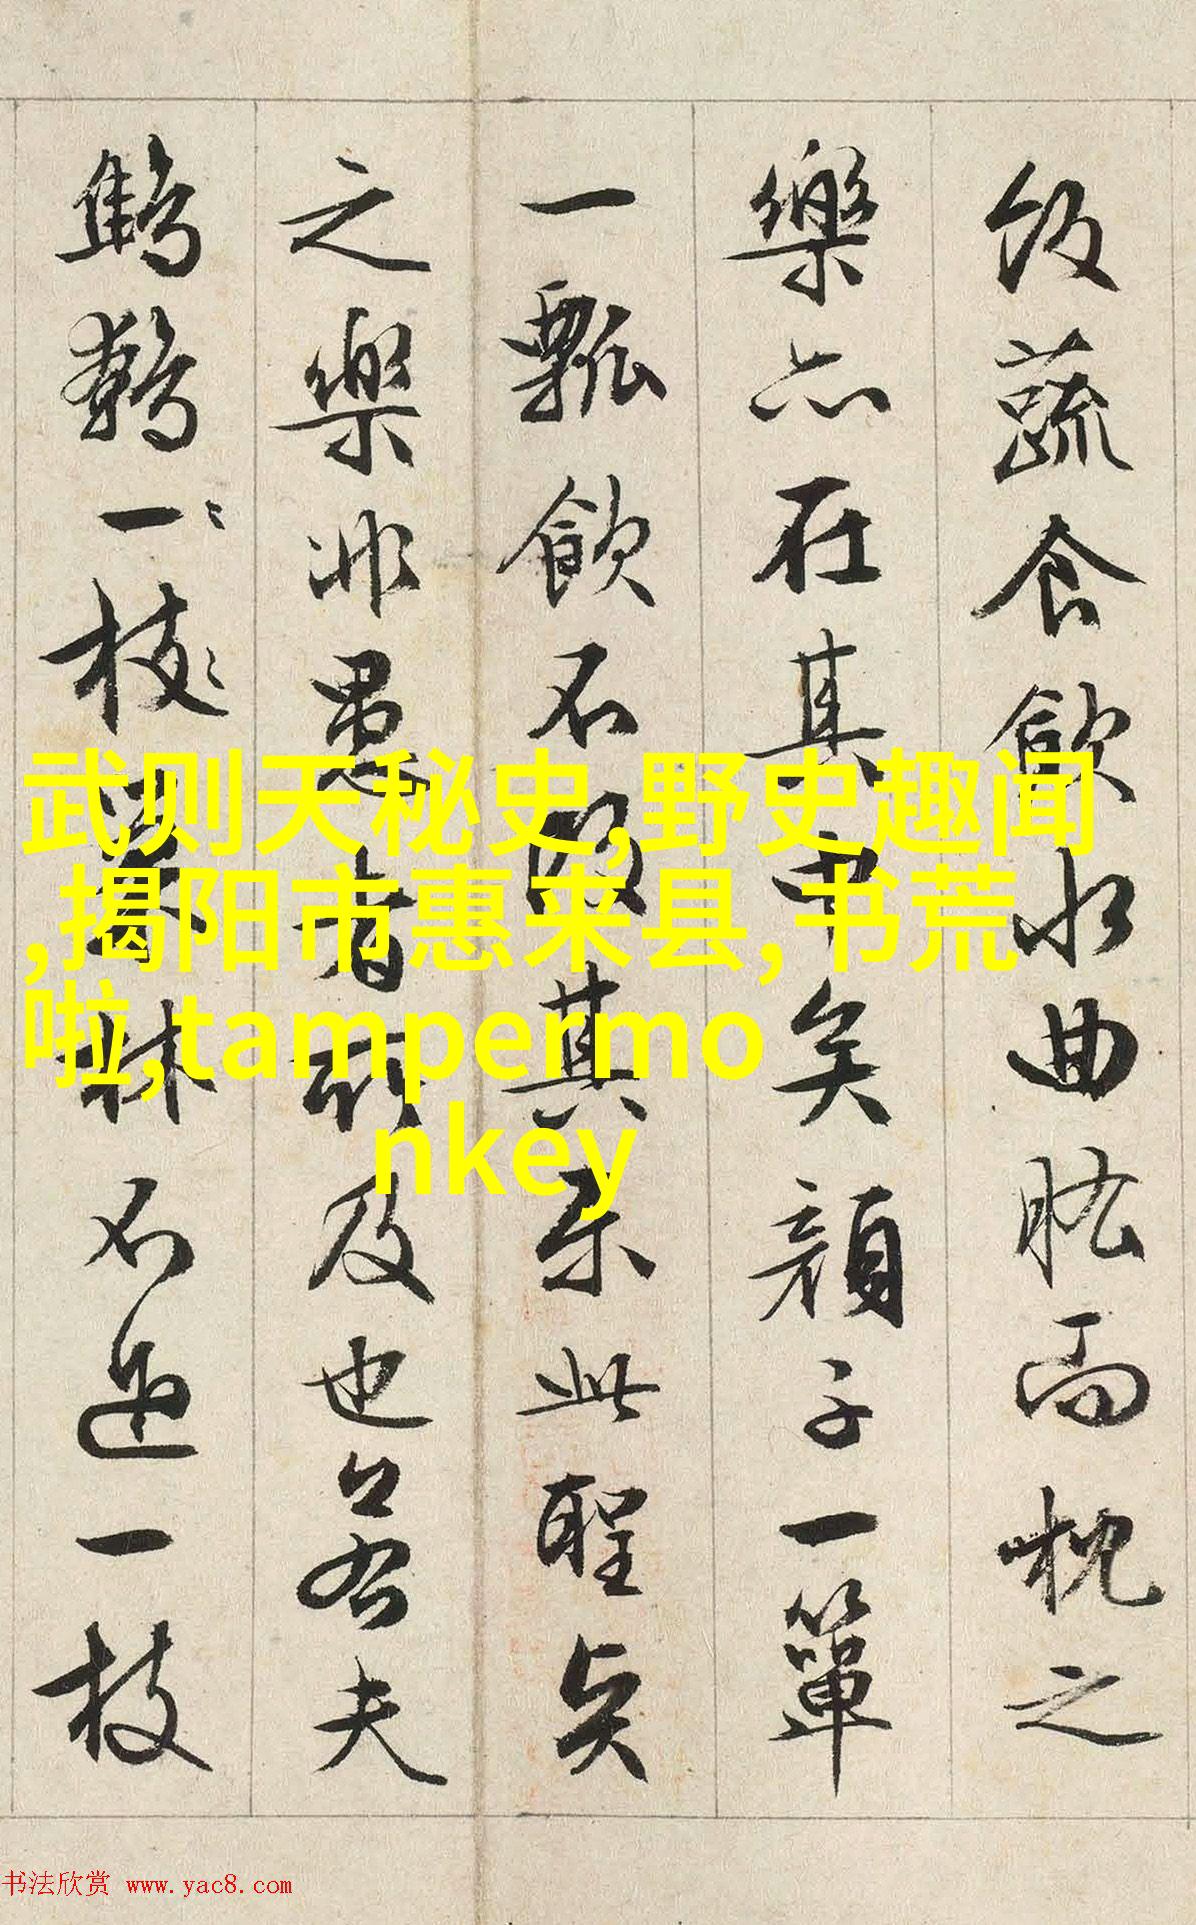 飯蔬食飲水曲肱而枕之
樂亦在其中矣顏子一簞
一瓢飲不改其樂此聖賢
之樂非愚者所及也若夫
鷦鷯一枝巢林不過一枝
武则天秘史,野史趣闻
,揭阳市惠来县,书荒
啦,tampermo
nkey
书法欣赏 www.yac8.com